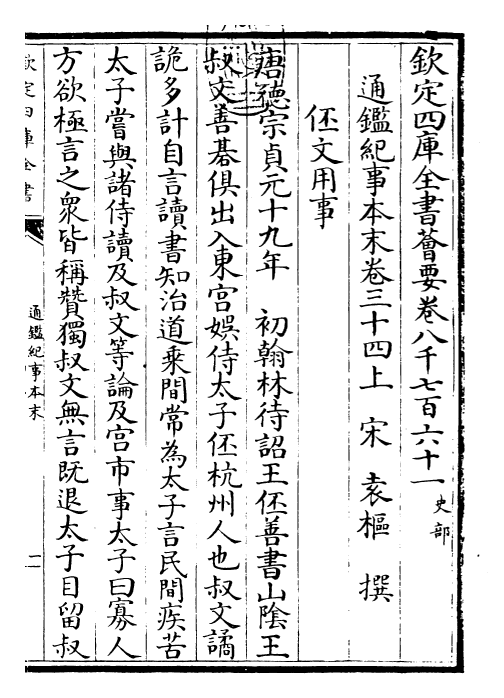 欽定四庫全書薈要卷八千七百六十一 史部
通鑑紀事本末卷三十四上 宋 袁樞 撰
伾文用事
唐德宗貞元十九年 初翰林待詔王伾善書山陰王
叔文善棊俱出入東宮娯侍太子伾杭州人也叔文譎
詭多計自言讀書知治道乘間常為太子言民間疾苦
太子嘗與諸侍讀及叔文等論及宫市事太子曰寡人
方欲極言之衆皆稱贊獨叔文無言既退太子自留叔
欽定四庫全書
通鑑紀事本末